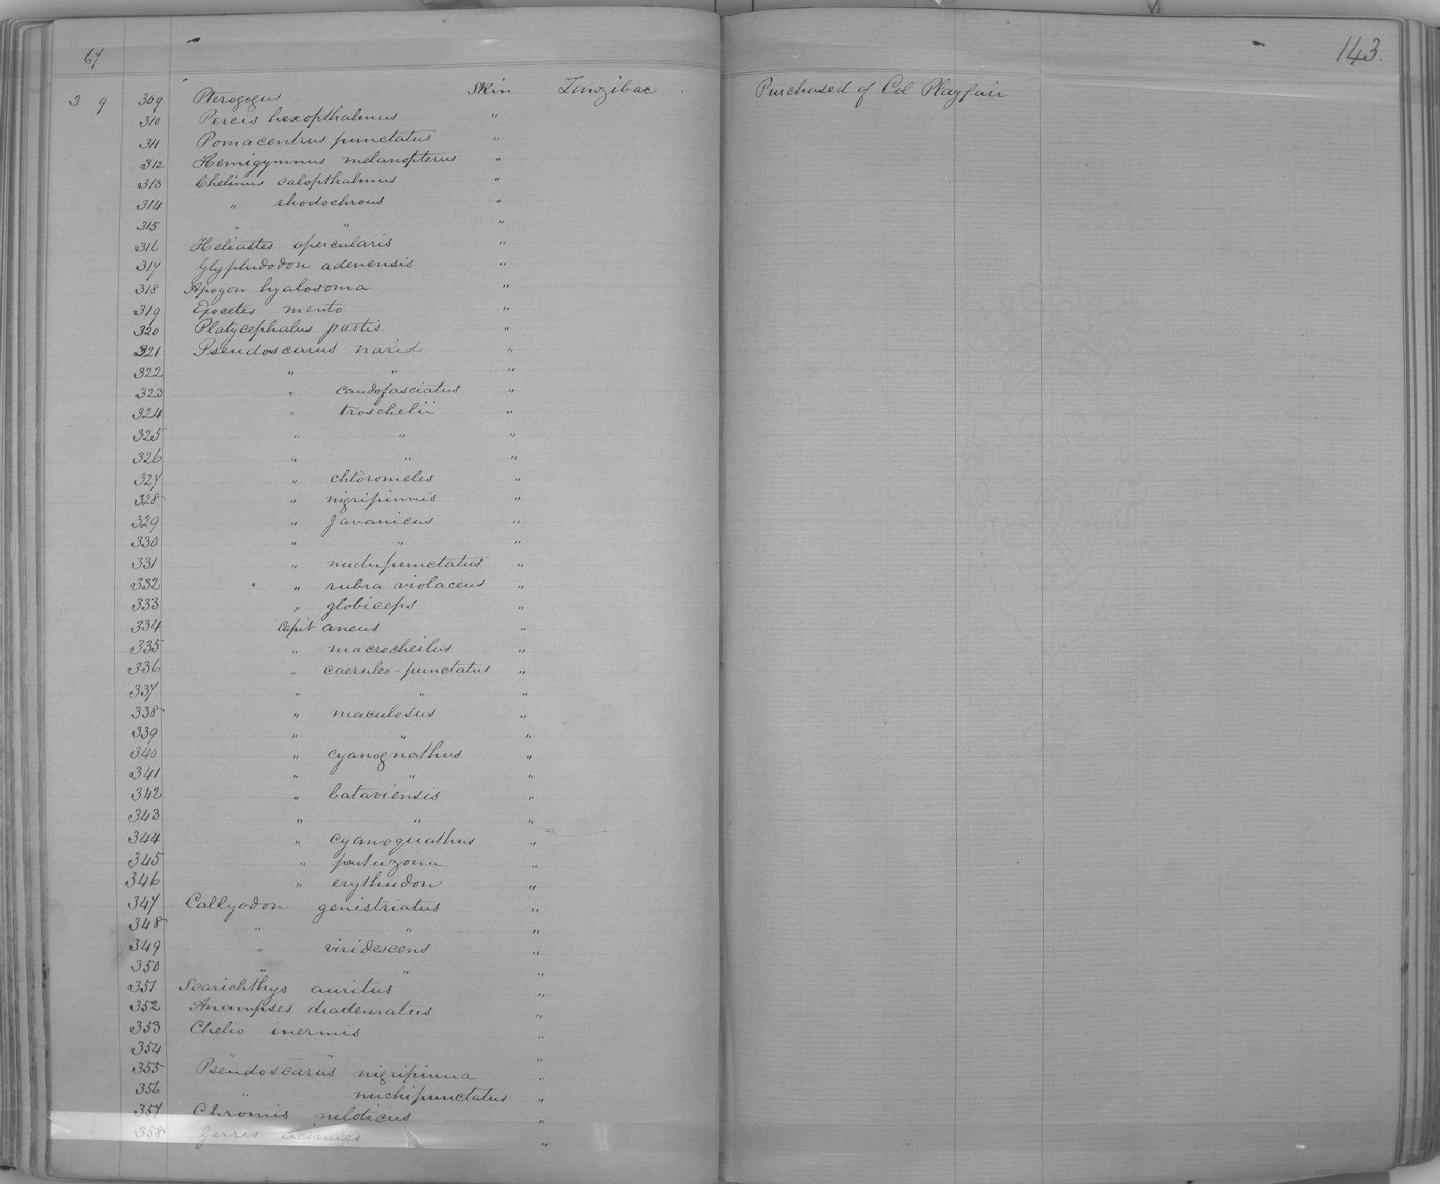 67
143.
3 9 309 Pterogogus Skin Zanzibar . Purchased of Col Playfair
310 Percis hexopthalmus "
311 Pomacentrus punctatus "
312 Hemigymnus melanopterus "
313 Chelinus calopthalmus "
314 " rhodochrous "
315 " " "
316 Heliastes opercularis "
317 Glyphidodon adenensis "
318 Apogon hyalosoma "
319 Exocetes mento "
320 Platycephalus pustis "
321 Pseudoscarus harid "
322 " " "
323 " caudofasciatus "
324 " troschelii "
325 " " "
326 " " "
327 " chloromeles "
328 " nigripinnis "
329 " Javanicus "
330 " " "
331 " nuchipunctatus "
332 " rubra violaceus "
333 " globiceps "
334 Capit aneus "
335 " macrocheilus "
336 " caeruleo-punctatus "
337 " " "
338 " maculosus "
339 " " "
340 " cyanognathus "
341 " " "
342 " bataviensis "
343 " " "
344 " cyanoguathus "
345 " "
346 " erythudon "
347 Callyodon genistriatus "
348 " " "
349 " viridescens "
350 " " "
351 Scarichthys auritus "
352 Anampses diadematus "
353 Chelio inermis "
354 " " "
355 Pseudoscarus nigripinna "
356 " nuchipunctatus "
357 Chromis niloticus "
358 Gerres "